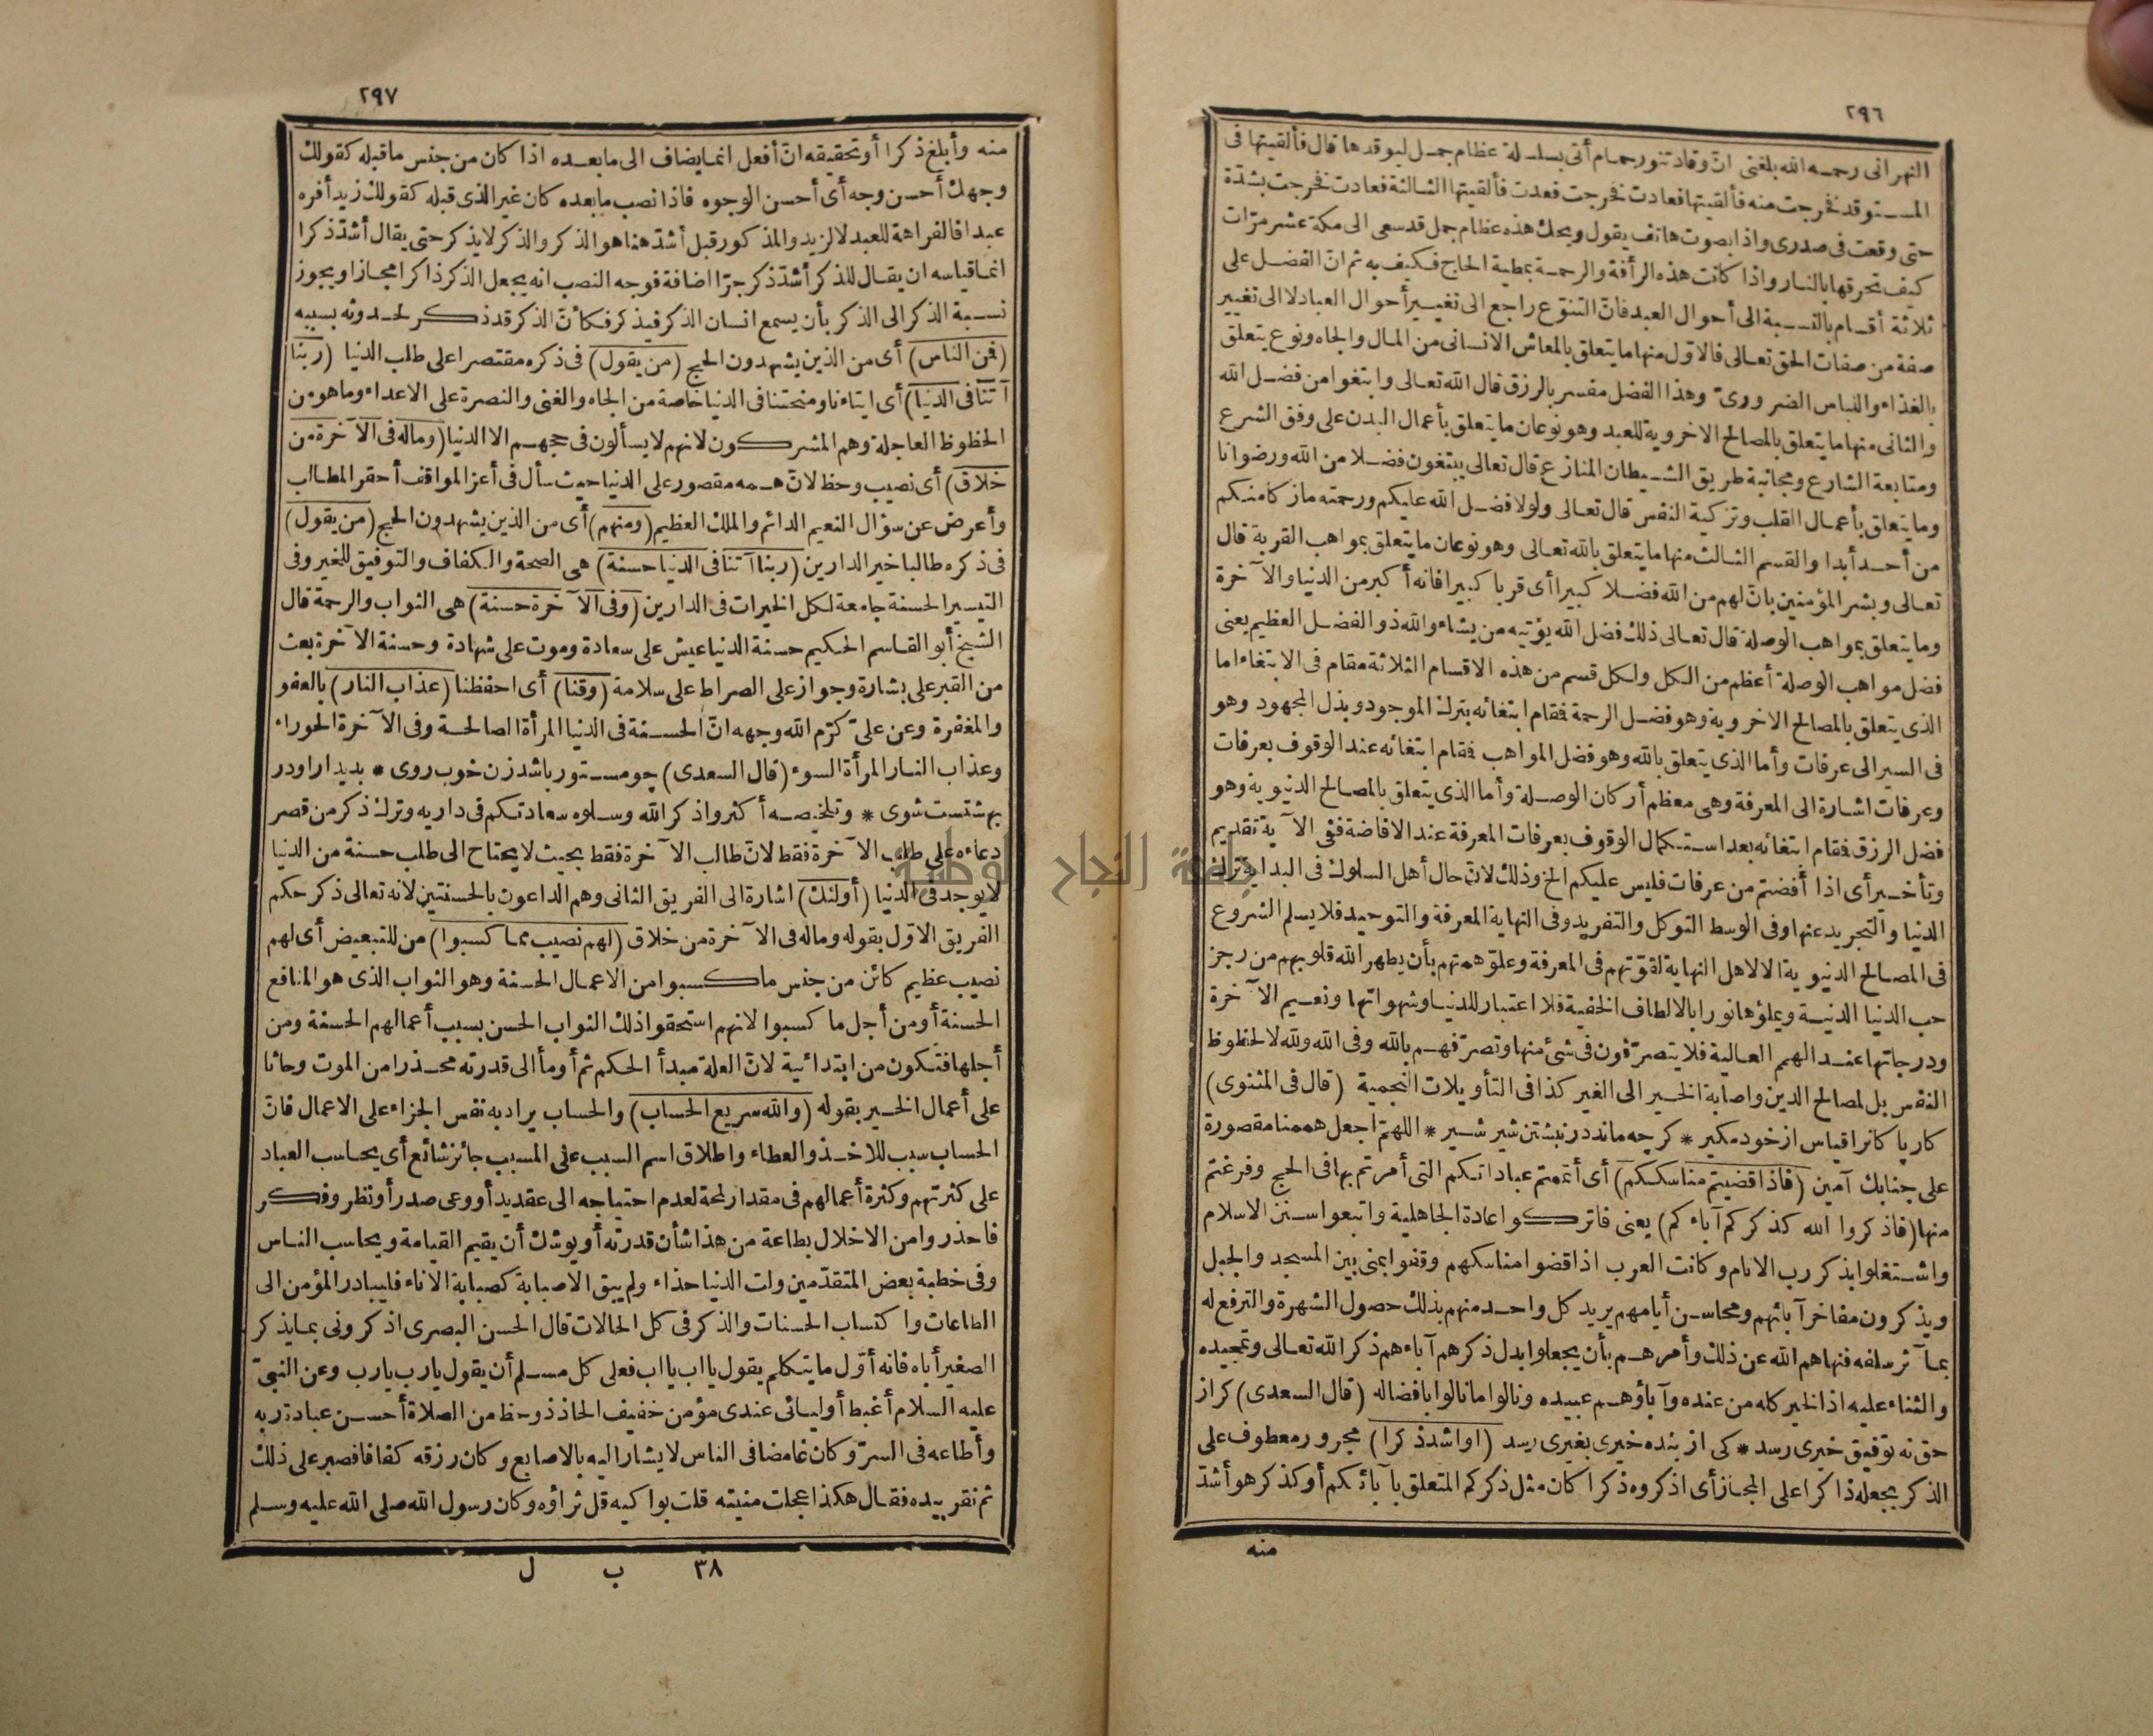 ٢٩٦
النهرانى رحمه الله بلغنى ان وقاد تنور حمام أتى بسلسلة عظام جمل ليوقدها قال فألقيتها فى
المستوقد فخرجت منه فألقيتها فعادت فخرجت فعدت فألقيتها الثالثة فعادت فخرجت بشدّة
حتى وقعت فى صدرى واذا بصوت هاتف يقول ويحك هذه عظام جمل قد سعى الى مكة عشر مرّات
كيف تحرقها بالنار واذا كانت هذه الرأفة والرحمة بمطية الحاج فكيف به ثم انّ الفضل على
ثلاثة أقسام بالنسبة الى أحوال العبد فانّ التنوّع راجع الى تغيير أحوال العباد لا الى تغيير
صفة من صفات الحق تعالى فالاوّل منها ما يتعلق بالمعاش الانسانى من المال والجاه ونوع يتعلق
بالغذاء واللباس الضرورىّ وهذا الفضل مفسر بالرزق قال الله تعالى وابتغوا من فضل الله
والثانى منها ما يتعلق بالمصالح الاخروية للعبد وهو نوعان ما يتعلق بأعمال البدن على وفق الشرع
ومتابعة الشارع ومجانبة طريق الشيطان المنازع قال تعالى يبتغون فضلا من الله ورضوانا
وما يتعلق بأعمال القلب وتزكية النفس قال تعالى ولولا فضل الله عليكم ورحمته ما زكا منكم
من أحد أبدا والقسم الثالث منها ما يتعلق بالله تعالى وهو نوعان ما يتعلق بمواهب القربة قال
تعالى وبشر المؤمنين بانّ لهم من الله فضلا كبيرا أى قربا كبيرا فانه أكبر من الدنيا والآخرة
وما يتعلق بمواهب الوصلة قال تعالى ذلك فضل الله يؤتيه من يشاء والله ذو الفضل العظيم يعنى
فضل مواهب الوصلة أعظم من الكل ولكل قسم من هذه الاقسام الثلاثة مقام فى الابتغاء اما
الذى يتعلق بالمصالح الاخروية وهو فضل الرحمة فمقام ابتغائه بترك الموجود وبذل المجهود وهو
فى السير الى عرفات وأما الذى يتعلق بالله وهو فضل المواهب فمقام ابتغائه عند الوقوف بعرفات
وعرفات اشارة الى المعرفة وهى معظم أركان الوصلة وأما الذى يتعلق بالمصالح الدنيوية وهو
فضل الرزق فمقام ابتغائه بعد استكمال الوقوف بعرفات المعرفة عند الافاضة ففى الآية تقديم
وتأخير أى اذا أفضتم من عرفات فليس عليكم الخ وذلك لانّ حال أهل السلوك فى البداية ترك
الدنيا والتجريد عنها وفى الوسط التوكل والتفريد وفى النهاية المعرفة والتوحيد فلا يسلم الشروع
فى المصالح الدنيوية الا لاهل النهاية لقوّتهم فى المعرفة وعلوّ همتهم بأن يطهر الله قلوبهم من رجز
حب الدنيا الدنية ويملؤها نورا بالالطاف الخفية فلا اعتبار للدنيا وشهواتها ونعيم الآخرة
ودرجاتها عند الهمم العالية فلا يتصرّفون فى شئ منها وتصرّفهم بالله وفى الله ولله لا لحظوظ
النفس بل لمصالح الدين واصابة الخير الى الغير كذا فى التأويلات النجمية (قال فى المثنوى)
كار پا كانرا قياس از خود مكير * كرچه ماند در نبشتن شير شير * اللهمّ اجعل هممنا مقصورة
على جنابك آمين (فاذا قضيتم مناسككم) أى أتممتم عباداتكم التى أمرتم بها فى الحج وفرغتم
منها (فاذكروا الله كذكركم آباءكم) يعنى فاتركوا عادة الجاهلية واتبعوا سنن الاسلام
واشتغلوا بذكر رب الانام وكانت العرب اذا قضوا مناسكهم وقفوا بمنى بين المسجد والجبل
ويذكرون مفاخر آبائهم ومحاسن أيامهم يريد كل واحد منهم بذلك حصول الشهرة والترفع له
بمآثر سلفه فنهاهم الله عن ذلك وأمرهم بأن يجعلوا بدل ذكرهم آباءهم ذكر الله تعالى وتمجيده
والثناء عليه اذ الخير كله من عنده وآباؤهم عبيده ونالوا ما نالوا بافضاله (قال السعدى) كر از
حق نه توفيق خيرى رسد * كى از بنده خيرى بغيرى رسد (او اشد ذكرا) مجرور معطوف على
الذكر بجعله ذاكرا على المجاز أى اذكروه ذكرا كان مثل ذكركم المتعلق بآبائكم أو كذكر هو أشدّ
منه
٢٩٧
منه وأبلغ ذكرا أو تحقيقه انّ أفعل انما يضاف الى ما بعده اذا كان من جنس ما قبله كقولك
وجهك أحسن وجه أى أحسن الوجوه فاذا نصب ما بعده كان غير الذى قبله كقولك زيد أفره
عبدا فالفراهة للعبد لا لزيد والمذكور قبل أشدّ هنا هو الذكر والذكر لا يذكر حتى يقال أشدّ ذكرا
انما قياسه ان يقال للذكر أشدّ ذكر جرّا اضافة فوجه النصب انه يجعل الذكر ذاكرا مجازا ويجوز
نسبة الذكر الى الذكر بأن يسمع انسان الذكر فيذكر فكأنّ الذكر قد ذكر لحدوثه بسببه
(فمن الناس) أى من الذين يشهدون الحج (من يقول) فى ذكره مقتصرا على طلب الدنيا (ربنا
آتنا فى الدنيا) أى ايتاءنا ومنحتنا فى الدنيا خاصة من الجاه والغنى والنصرة على الاعداء وما هو من
الحظوظ العاجلة وهم المشركون لانهم لا يسألون فى حجهم الا الدنيا (وما له فى الآخرة من
خلاق) أى نصيب وحظ لانّ همه مقصور على الدنيا حيث سأل فى أعز المواقف أحقر المطالب
وأعرض عن سؤال النعيم الدائم والملك العظيم (ومنهم) أى من الذين يشهدون الحج (من يقول)
فى ذكره طالبا خير الدارين (ربنا آتنا فى الدنيا حسنة) هى الصحة والكفاف والتوفيق للخير وفى
التيسير الحسنة جامعة لكل الخيرات فى الدارين (وفى الآخرة حسنة) هى الثواب والرحمة قال
الشيخ أبو القاسم الحكيم حسنة الدنيا عيش على سعادة وموت على شهادة وحسنة الآخرة بعث
من القبر على بشارة وجواز على الصراط على سلامة (وقنا) أى احفظنا (عذاب النار) بالعفو
والمغفرة وعن علىّ كرّم الله وجهه انّ الحسنة فى الدنيا المرأة الصالحة وفى الآخرة الحوراء
وعذاب النار المرأة السوء (قال السعدى) چو مستور باشد زن خوب روى * بديدار او در
بهشتست شوى * وتلخيصه أكثروا ذكر الله وسلوه سعادتكم فى داريه وترك ذكر من قصر
دعاءه على طلب الآخرة فقط لانّ طالب الآخرة فقط بحيث لا يحتاج الى طلب حسنة من الدنيا
لا يوجد فى الدنيا (أولئك) اشارة الى الفريق الثانى وهم الداعون بالحسنتين لانه تعالى ذكر حكم
الفريق الاوّل بقوله وما له فى الآخرة من خلاق (لهم نصيب مما كسبوا) من للتبعيض أى لهم
نصيب عظيم كائن من جنس ما كسبوا من الاعمال الحسنة وهو الثواب الذى هو المنافع
الحسنة أو من أجل ما كسبوا لانهم استحقوا ذلك الثواب الحسن بسبب أعمالهم الحسنة ومن
أجلها فتكون من ابتدائية لانّ العلة مبدأ الحكم ثم أومأ الى قدرته محذرا من الموت وحاثا
على أعمال الخير بقوله (والله سريع الحساب) والحساب يراد به نفس الجزاء على الاعمال فانّ
الحساب سبب للاخذ والعطاء واطلاق اسم السبب على المسبب جائز شائع أى يحاسب العباد
على كثرتهم وكثرة أعمالهم فى مقدار لمحة لعدم احتياجه الى عقد يد أو وعى صدر أو نظر وفكر
فاحذروا من الاخلال بطاعة من هذا شأن قدرته أو يوشك أن يقيم القيامة ويحاسب الناس
وفى خطبة بعض المتقدّمين ولت الدنيا حذاء ولم يبق الا صبابة كصبابة الاناء فليبادر المؤمن الى
الطاعات واكتساب الحسنات والذكر فى كل الحالات قال الحسن البصرى اذكرونى بما يذكر
الصغير أباه فانه أوّل ما يتكلم يقول يا اب يا اب فعلى كل مسلم أن يقول يارب يارب وعن النبىّ
عليه السلام أغبط أوليائى عندى مؤمن خفيف الحاذ ذو حظ من الصلاة أحسن عبادة ربه
وأطاعه فى السرّ وكان غامضا فى الناس لا يشار اليه بالاصابع وكان رزقه كفافا فصبر على ذلك
ثم نقر بيده فقال هكذا عجلت منيته قلت بواكيه قل تراؤه وكان رسول الله صلى الله عليه وسلم
٣٨ ب ل
جامعة النجاح الوطنية